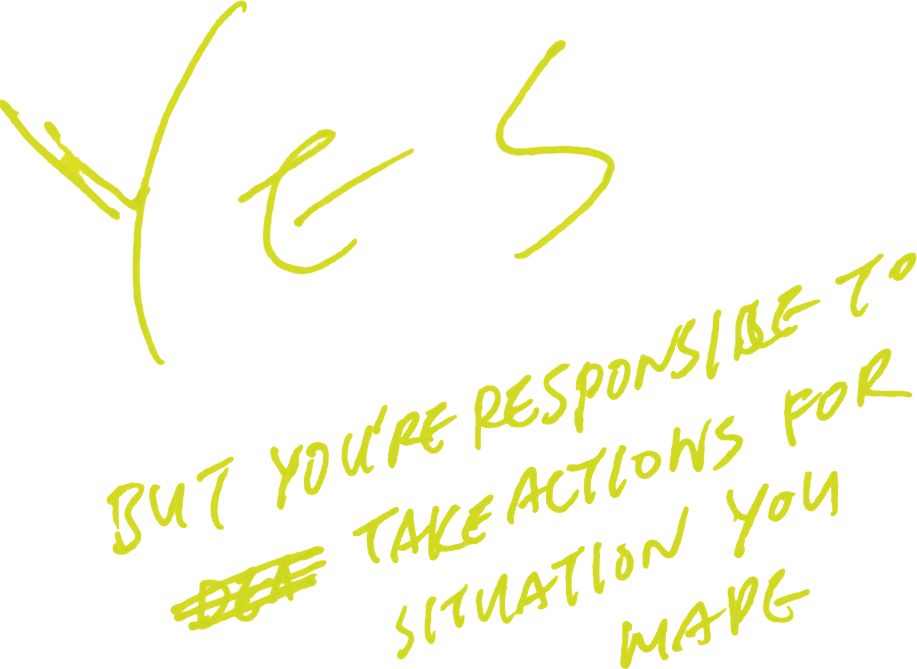 YES
BUT YOU'RE RESPONSIBE TO
TAKE ACTIONS FOR
SITUATION YOU
MADE